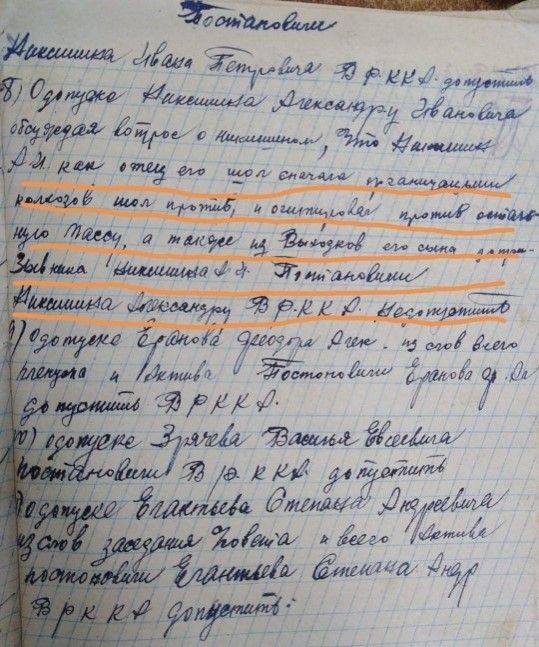 Постановили
Никишина Ивана Петровича В Р.К.К.А. допустить
8) О допуске Никишина Александру Ивановича
обсуждая вопрос о никишином, что Никишин
А.И. как отец его шол сначала организации
колхозов шол против, и агитировал против осталь-
ную массу, а также из Выходков его сына допри-
зывника Никишина А.И. Постановили
Никишина Александру В Р.К.К.А. недопустить
9) О допуске Еранова Феодора Алек. из слов всего
пленума и Актива Постоновили Еранова Ф. Ал
допустить В Р К К А.
10) о допуске Зрячева Василья Евсеевича
постановили В Р.К К А. допустить
) о допуске Елантьева Степана Андреевича
из слов заседания Совета и всего Актива
постоновили Елантьева Степана Андр
В Р К К А допустить.